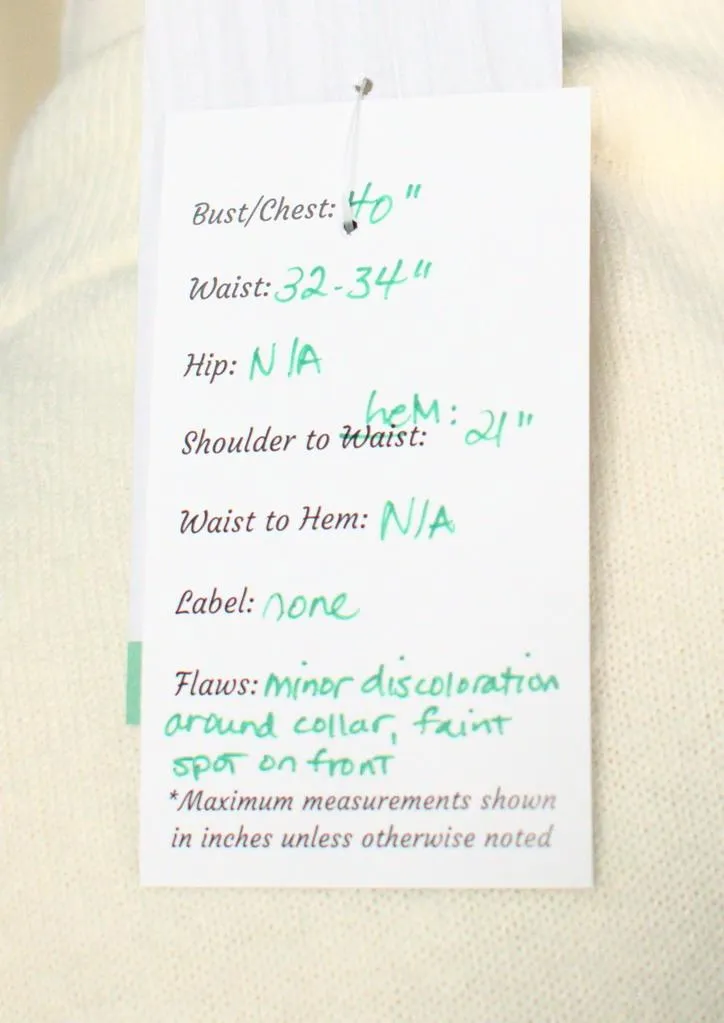 Bust/Chest: 40"
Waist: 32-34"
Hip: N/A
heM:
Shoulder to Waist: 21"
Waist to Hem: N/A
Label: none
Flaws: minor discoloration
around collar, faint
spot on front
*Maximum measurements shown
in inches unless otherwise noted